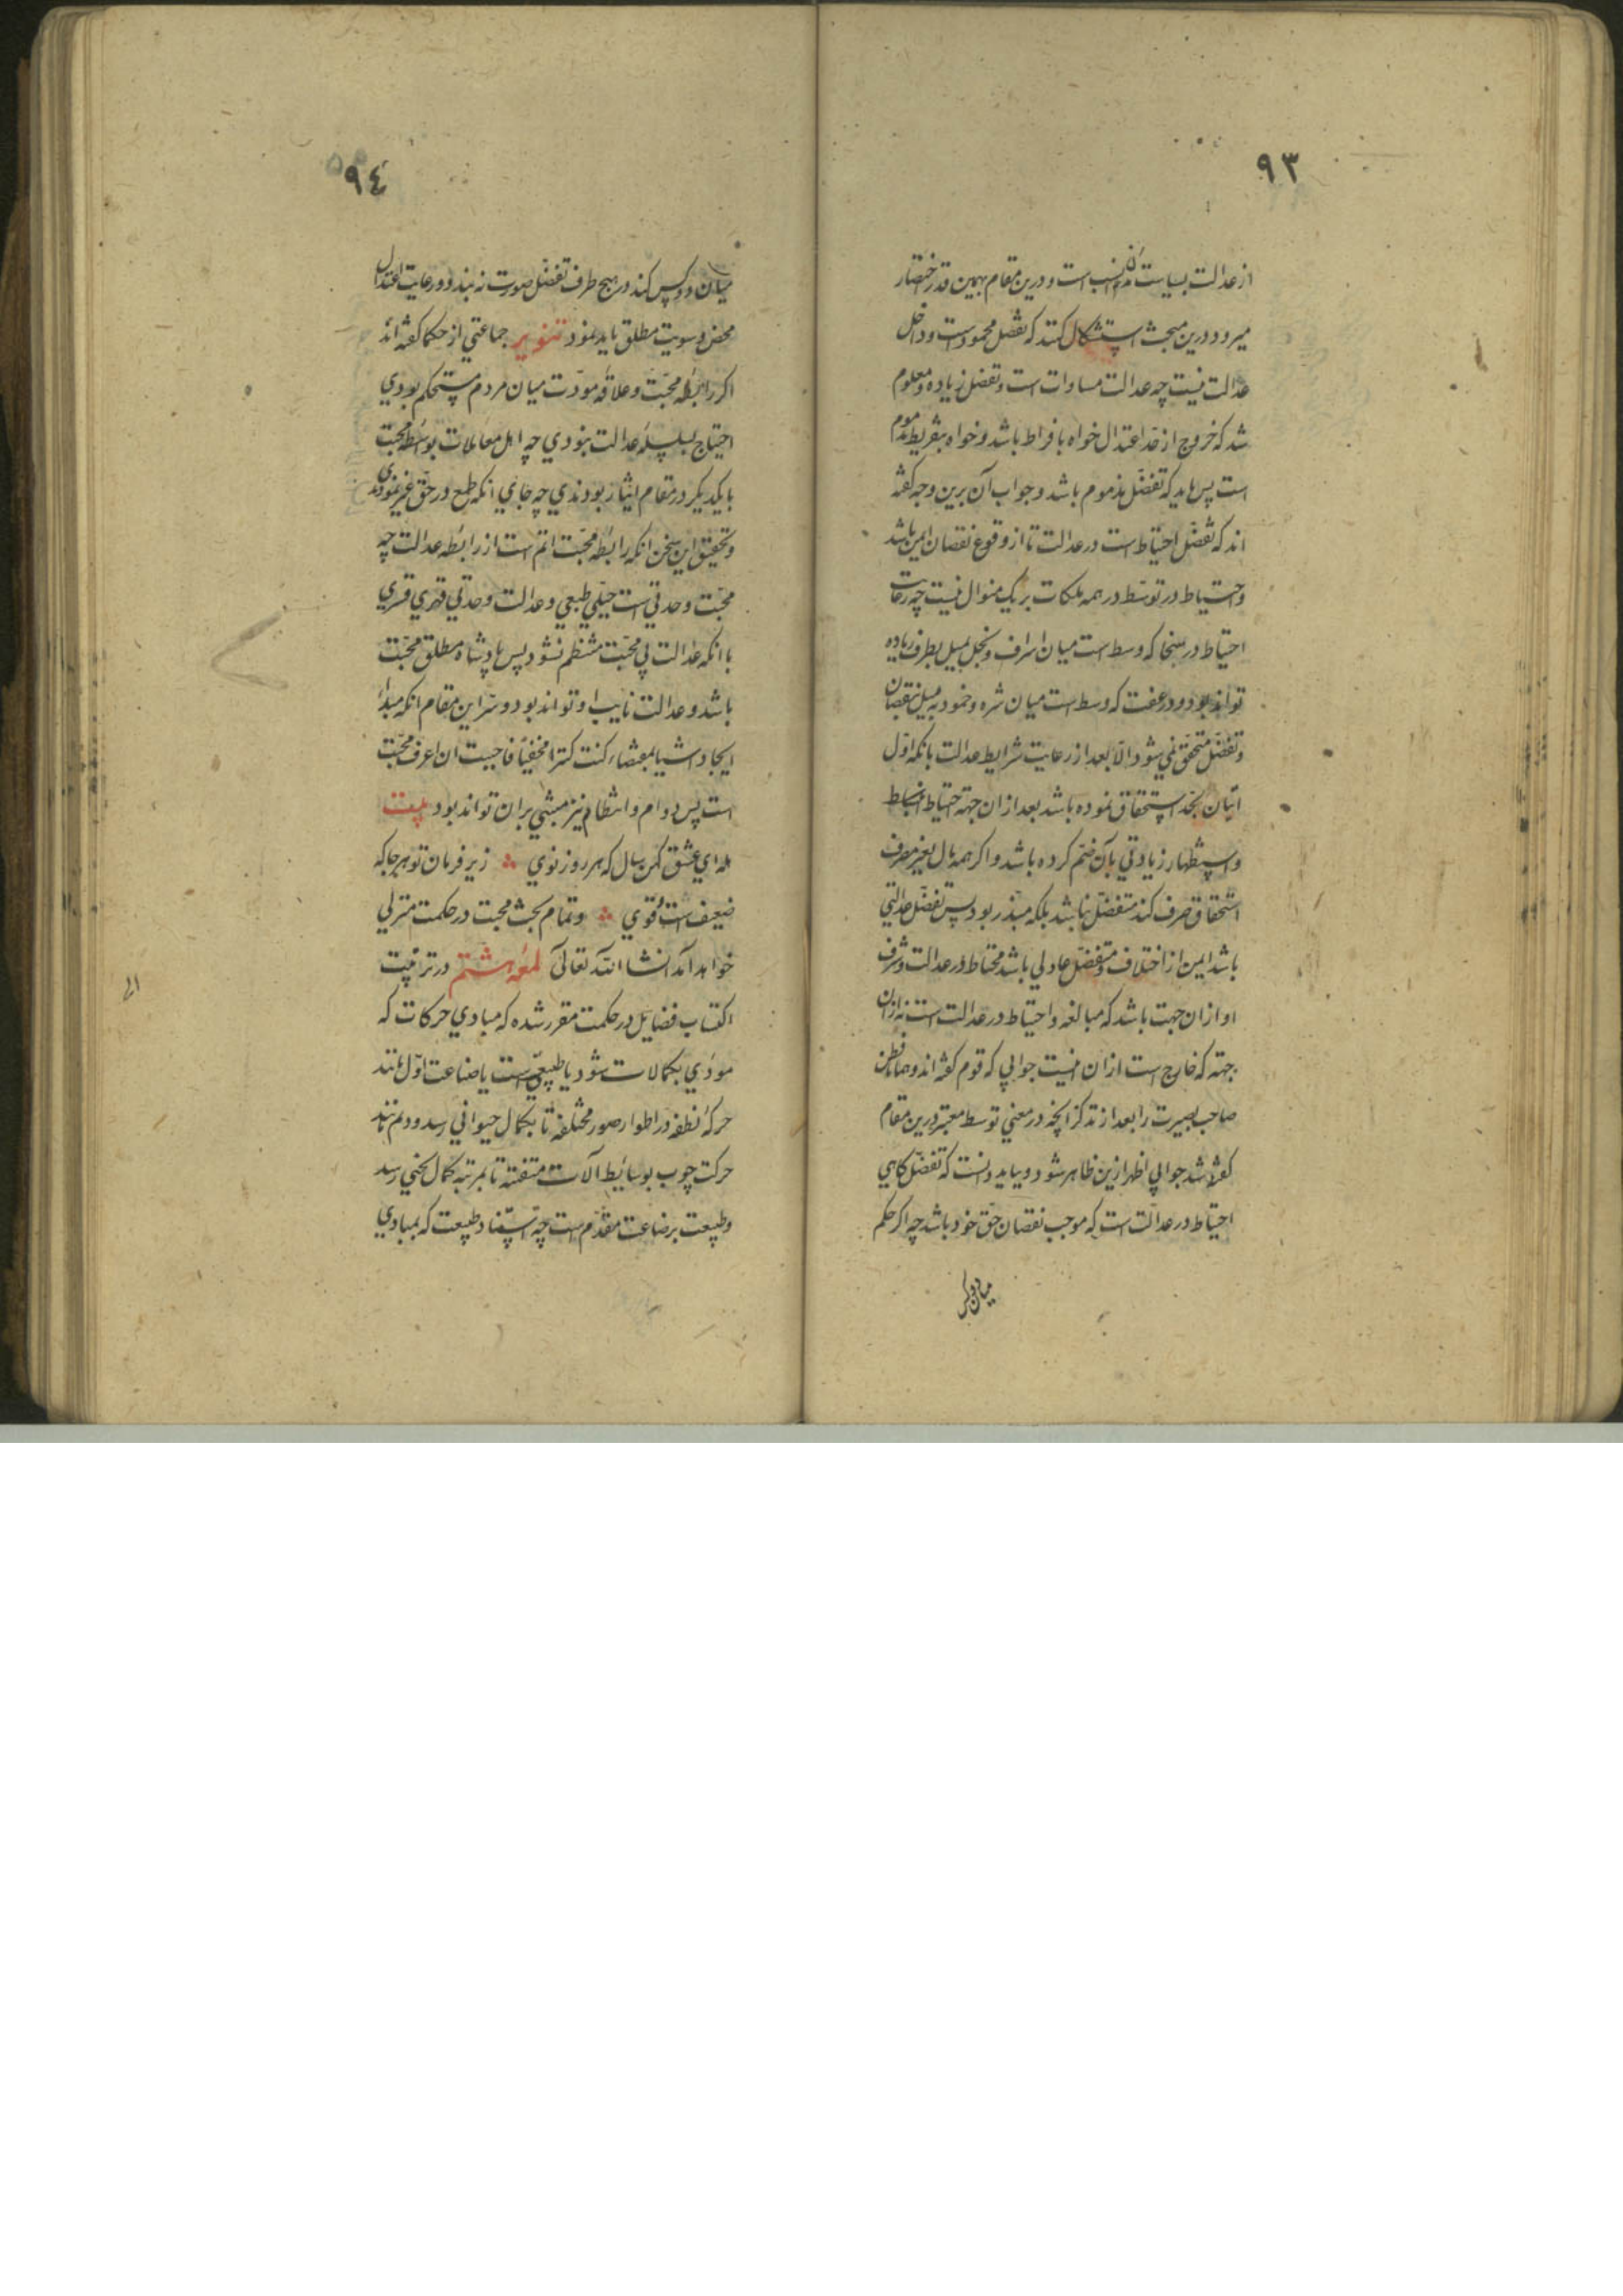 ٩٣
از عدالت بسیاست مدن انسب است و درین مقام بهمین قدر اختصار
میرود و درین مبحث استشکال کنند که تفضل محمودست و داخل
عدالت نیست چه عدالت مساوات است و تفضل زیاده و معلوم
شد که خروج از حد اعتدال خواه بافراط باشد و خواه بتفریط مذموم
است پس باید که تفضّل مذموم باشد و جواب آن برین وجه کفته
اند که تفضّل احتیاط است در عدالت تا از وقوع نقصان ایمن باشد
و احتیاط در توسّط در همه ملکات بر یک منوال نیست چه رعایت
احتیاط در سخا که وسط است میان اسراف و بخل بمیل بطرف زیاده
تواند بود و در عفت که وسط است میان شره و خمود بمیل بنقصان
و تفضّل متحقق نمی شود الا بعد از رعایت شرایط عدالت بانکه اوّل
اتیان بحد استحقاق نموده باشد بعد از ان جهة احتیاط
و استظهار زیادتی بآن ضم کرده باشد و اکر همه مال بغیر مصرف
استحقاق صرف کند متفضّل نباشد بلکه مبذر بود پس تفضّل عدالتی
باشد ایمن از اختلاف و متفضّل عادلی باشد محتاط در عدالت و شرف
او ازان جهت باشد که مبالغه و احتیاط در عدالت است نه ازان
جهة که خارج است از ان اینست جوابی که قوم کفته اند و همانا فطن
صاحب بصیرت را بعد از تذکر انچه در معنی توسط معتبر درین مقام
کفته شد جوابی اظهر ازین ظاهر شود و بباید دانست که تفضّل کاهی
احتیاط در عدالت است که موجب نقصان حق خود باشد چه اکر حکم
میان دو کس
٩٤
میان دو کس کند در هیچ طرف تفضّل صورت نه بندد و رعایت اعتدال
محض و سویت مطلق باید نمود تنویر جماعتی از حکما کفته اند
اکر رابطهٔ محبّت و علاقهٔ مودّت میان مردم مستحکم بودی
احتیاج بسلسلهٔ عدالت نبودی چه اهل معاملات بواسطهٔ محبت
با یکدیکر در مقام ایثار بودندی چه جای انکه طمع در حق غیر نمودندی
و تحقیق این سخن انکه رابطهٔ محبّت اتم است از رابطهٔ عدالت چه
محبّت وحدتی است جبلّی طبیعی و عدالت وحدتی قهری قسری
با انکه عدالت بی محبّت منتظم نشود پس پادشاه مطلق محبّت
باشد و عدالت نایب او تواند بود و سرّ این مقام انکه مبداء
ایجاد اشیا بمقتضاء کنت کنزا مخفیّا فاحببت ان اعرف محبّت
است پس دوام و انتظام نیز مبتنی بران تواند بود بیت
هله ای عشق کهن سال که هر روز نوی ∴ زیر فرمان تو هرجا که
ضعیف است و قوی ∴ و تمام بحث محبت در حکمت منزلی
خواهد آمد انشا الله تعالی لمعهٔ هشتم در ترتیب
اکتساب فضایل در حکمت مقرر شده که مبادی حرکات که
مودّی بکمالات شود یا طبیعی است یا صناعت اوّل مانند
حرکهٔ نطفه در اطوار صور مختلفه تا بکمال حیوانی رسد و دوم مانند
حرکت چوب بوسایط آلات متفننه تا بمرتبهٔ کمال تختی رسد
و طبیعت بر صناعت مقدّم است چه استناد طبیعت که بمبادی